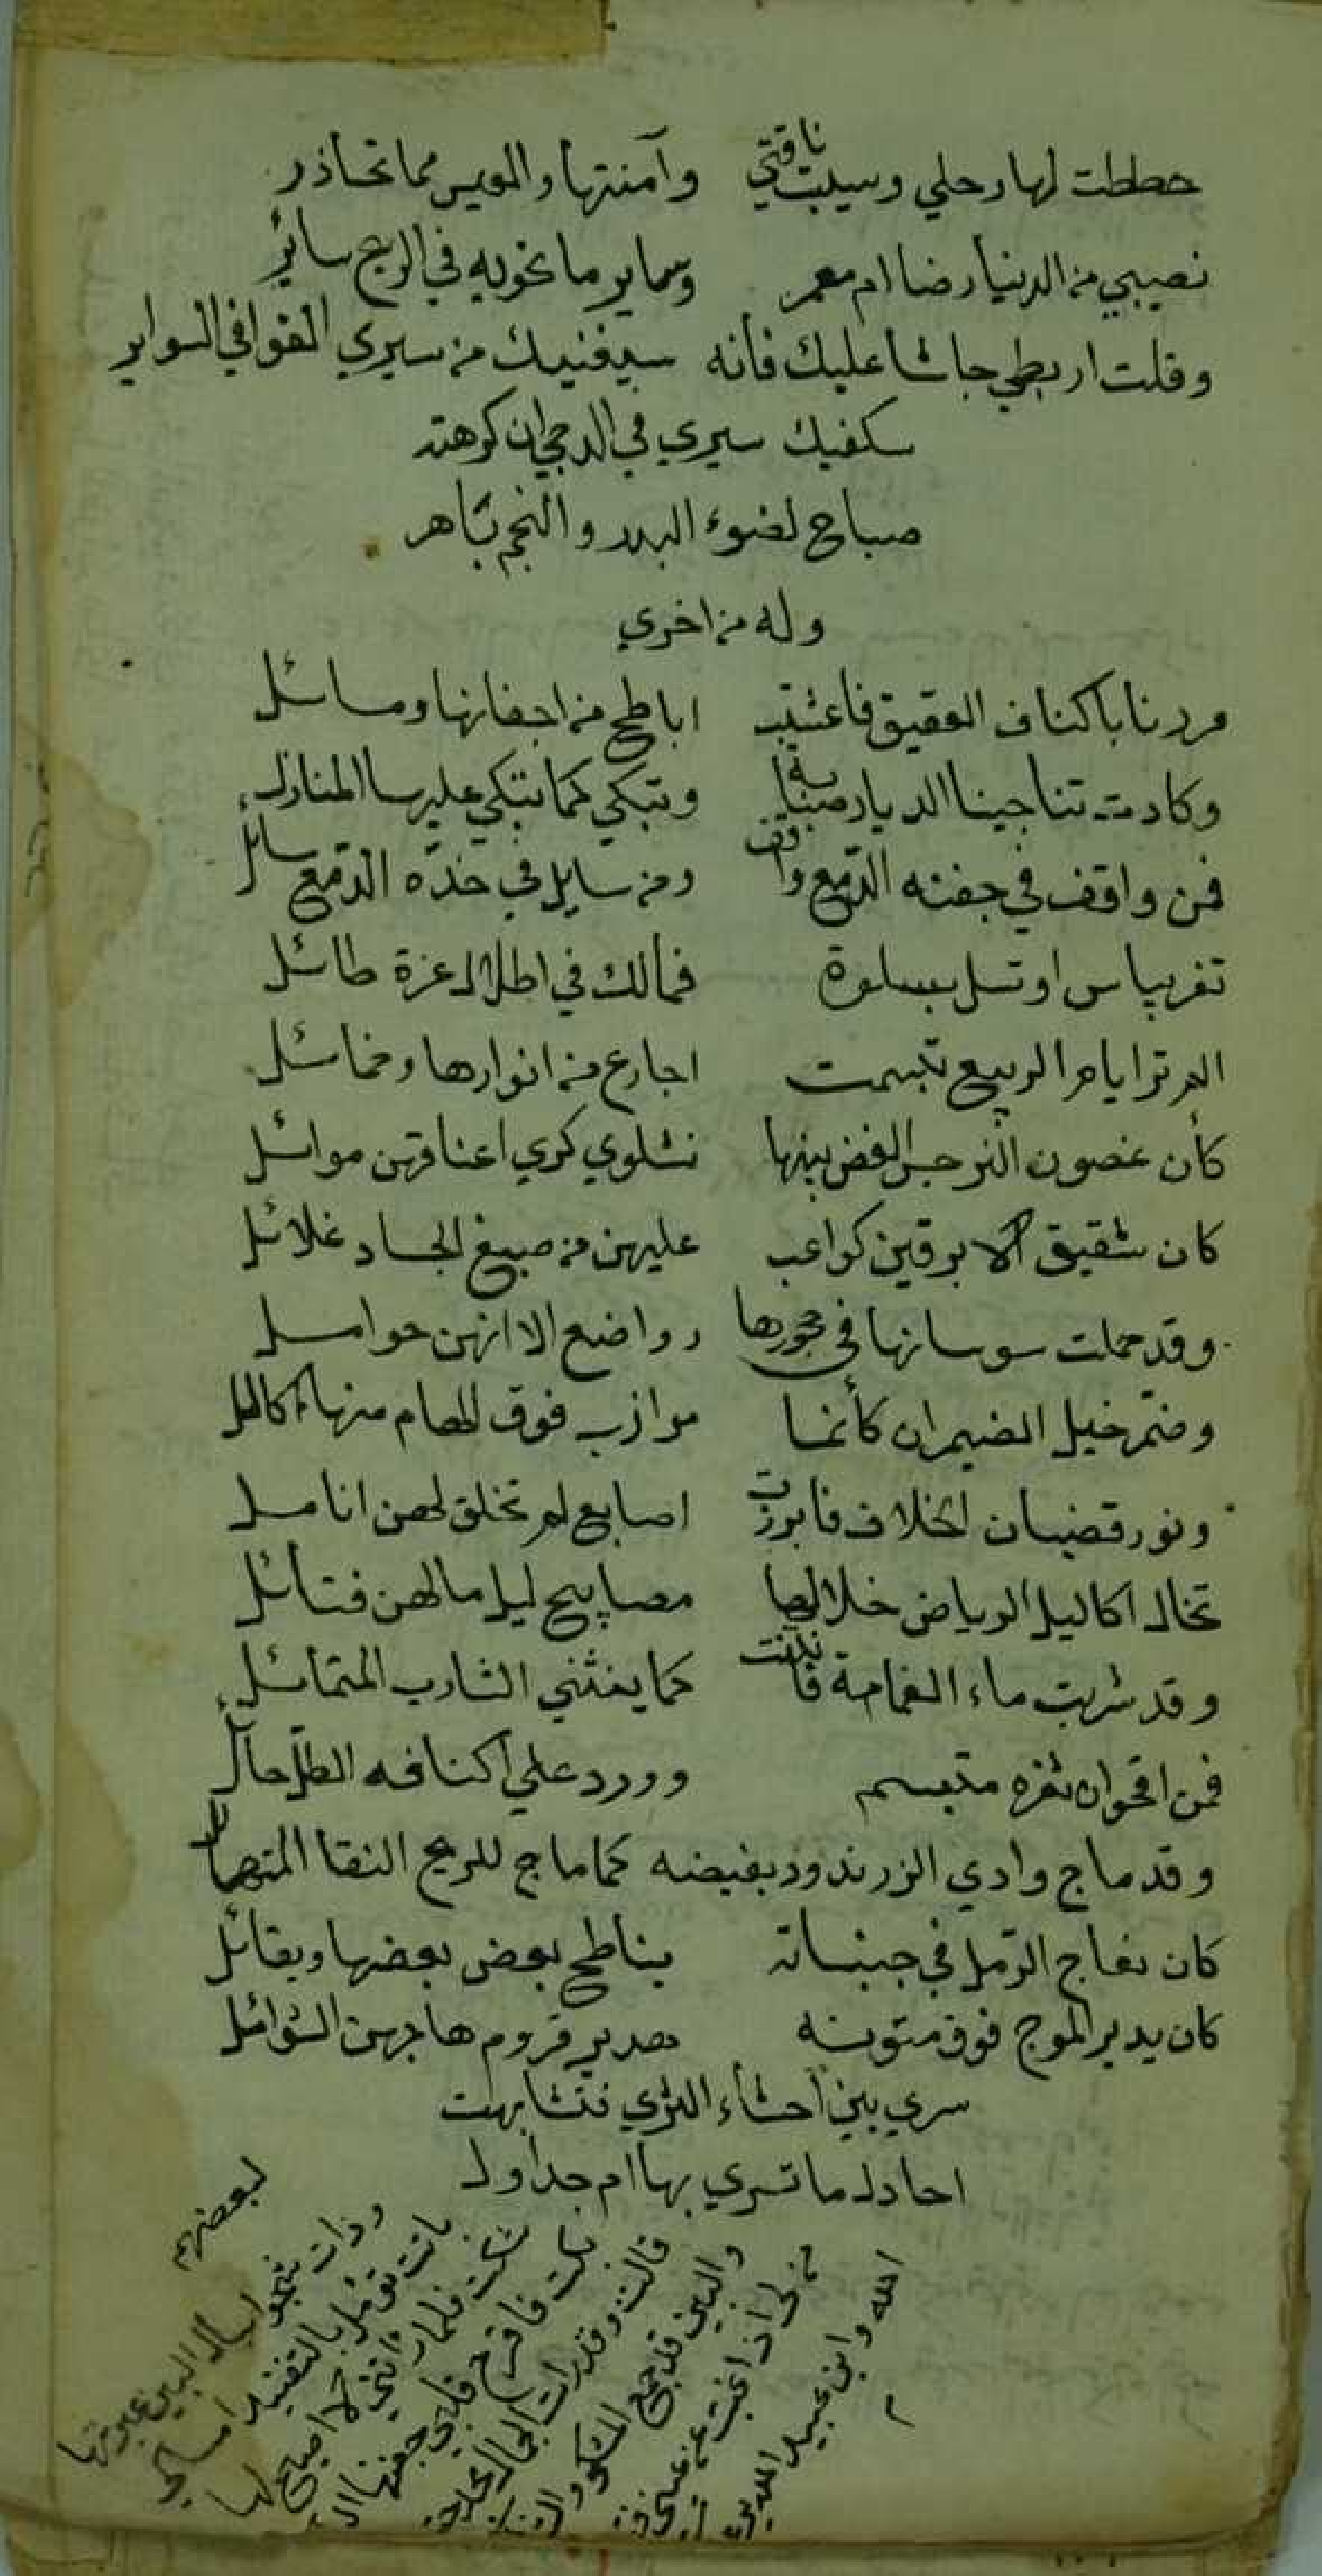 حططت لها رحلي وسيبت ناقتي وآمنتها والعيس مما تحاذر
نصيبي من الدنيا رضا ام معمر وسماير ما تحويه في الريح ساير
وقلت اربطي جاشا عليك فأنه سيغنيك من سيري القوافي السواير
سكفيك سيري في الدجي ان كرهته
صباح لضوء البدر والنجم باهر
وله من اخري
مررنا باكناف العقيق فاعشبت اباطح من اجفانها ومسائل
وكادت تناجينا الديار صبابة وتبكي كما نبكي عليها المنازل
فمن واقف في جفنه الدمع واقف ومن سايل في خده الدمع سائل
تعز بياس او تسل بسلوة فمالك في اطلال عزة طائل
الم تر ايام الربيع تبسمت اجارع من انوارها وخمائل
كأن غصون النرجس الغض بينها نشاوي كري اعناقهن موائل
كان شقيق الابرقين كواعب عليهن من صبيغ الجساد غلائل
وقد حملت سوسانها في حجورها رواضع الا انهن حوامل
وضم خيل الضيمران كأنما موازب فوق الهام منها اكاليل
ونور قضبان الخلاف فابرزت اصابع لم تخلق لهن انامل
تخال اكاليل الرياض خلالها مصابيح ليل ما لهن فتائل
وقد شربت ماء الغمامة فانثنت كما ينثني الشارب المتمائل
فمن اقحوان ثغره متبسم وورد علي اكنافه الطل حائل
وقد ماج وادي الزرندود بفيضه كما ماج للريح النقا المتهايل
كان نعاج الرمل في جنباته يناطح بعض بعضها ويقاتل
كان يدير الموج فوق متونه هدير قروم هاجهن الشوائل
سري بين احشاء الثري فتشابهت
احادل ما تسري بها ام جداول
لبعضهم
وذات شجو اسال البين عبرتها
باتت تؤمل بالتفنيد امساكي
شكت فلما رأتني لا اصيخ لها
بكت فاقرح قلبي جفنها
قالت وقد رات
والبين قد جمع المشكو والشاكي
من لي اذا غبت عن عيني
الله وابن عبيد الله